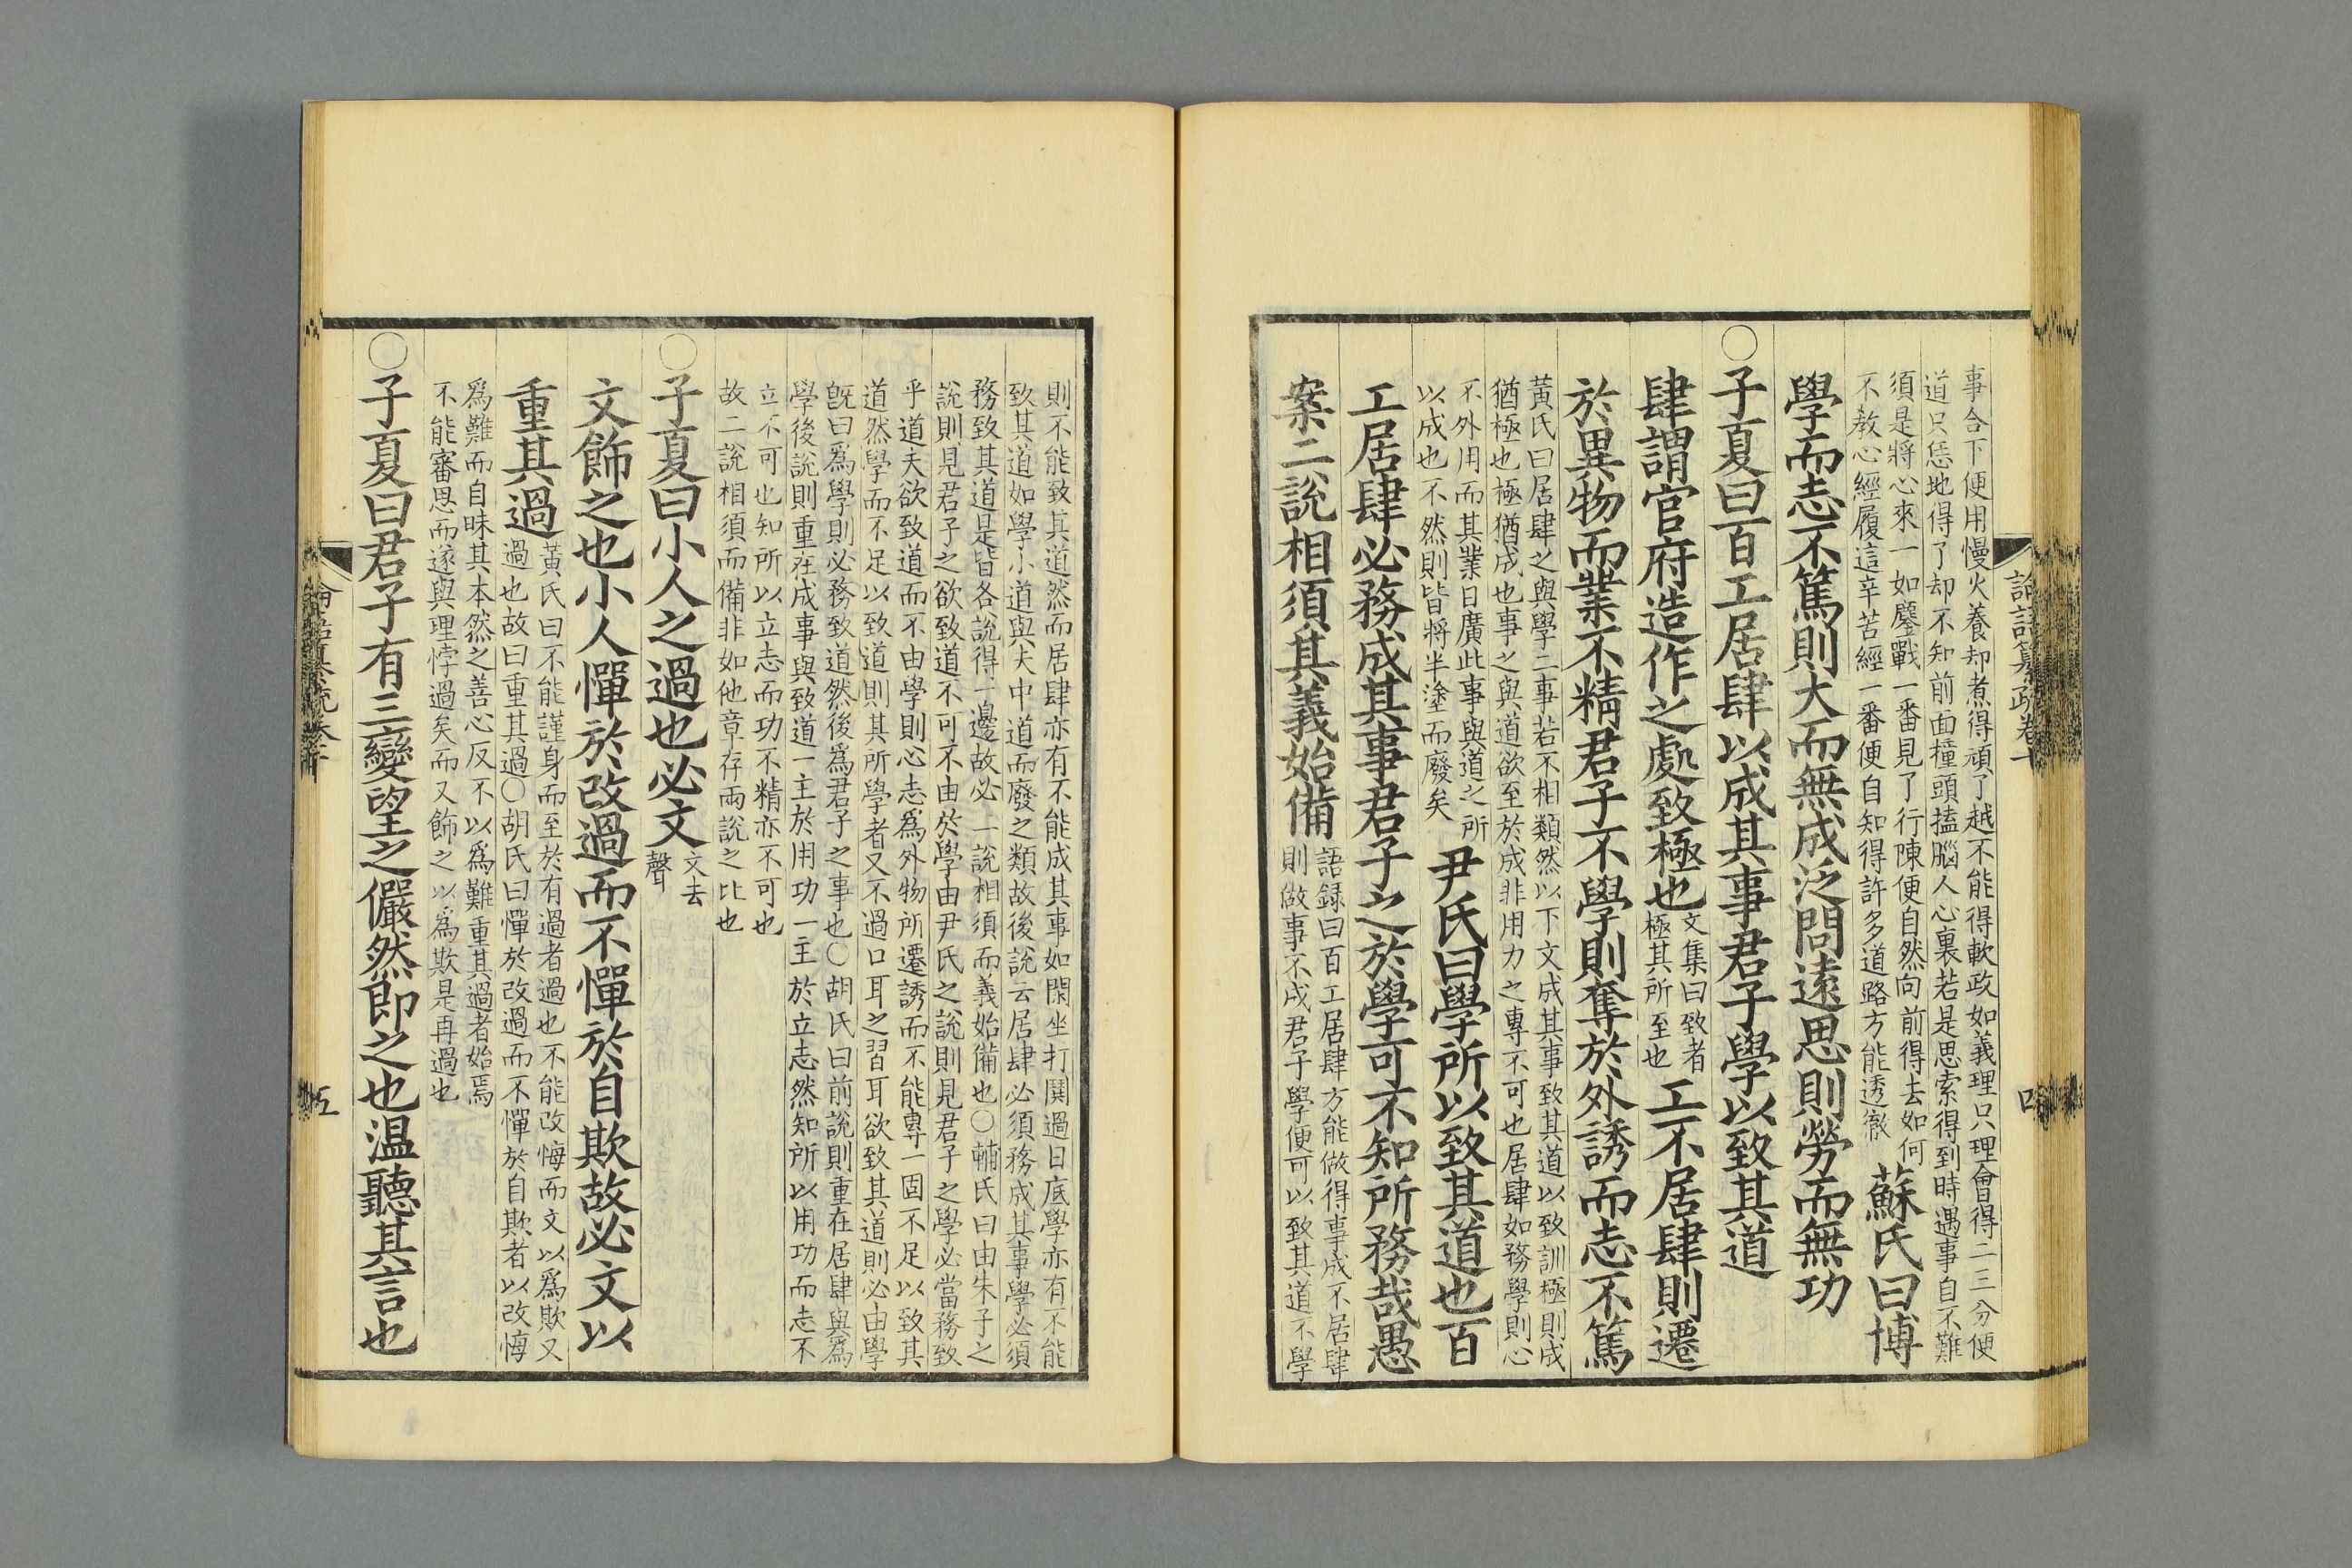 論語纂疏卷十
四
事合下便用慢火養却煮得頑了越不能得軟政如義理只理會得二三分便
道只恁地得了却不知前面橦頭搕腦人心裏若是思索得到時遇事自不難
須是將心來一如鏖戰一番見了行陳便自然向前得去如何
不教心經履這辛苦經一番便自知得許多道路方能透徹
蘇氏曰博
學而志不篤則大而無成泛問遠思則勞而無功
○子夏曰百工居肆以成其事君子學以致其道
肆謂官府造作之處致極也
文集曰致者
極其所至也
工不居肆則遷
於異物而業不精君子不學則奪於外誘而志不篤
黃氏曰居肆之與學二事若不相類然以下文成其事致其道以致訓極則成
猶極也極猶成也事之與道欲至於成非用力之專不可也居肆如務學則心
不外用而其業日廣此事與道之所
以成也不然則皆將半塗而廢矣
尹氏曰學所以致其道也百
工居肆必務成其事君子之於學可不知所務哉愚
案二說相須其義始備
語録曰百工居肆方能做得事成不居肆
則做事不成君子學便可以致其道不學
則不能致其道然而居肆亦有不能成其事如閑坐打鬨過日底學亦有不能
致其道如學小道與夫中道而廢之類故後說云居肆必須務成其事學必須
務致其道是皆各說得一邊故必一說相須而義始備也○輔氏曰由朱子之
說則見君子之欲致道不可不由於學由尹氏之說則見君子之學必當務致
乎道夫欲致道而不由學則心志爲外物所遷誘而不能專一固不足以致其
道然學而不足以致道則其所學者又不過口耳之習耳欲致其道則必由學
旣曰爲學則必務致道然後爲君子之事也○胡氏曰前說則重在居肆與爲
學後說則重在成事與致道一主於用功一主於立志然知所以用功而志不
立不可也知所以立志而功不精亦不可也
故二說相須而備非如他章存兩說之比也
○子夏曰小人之過也必文
文去
聲
文飾之也小人憚於改過而不憚於自欺故必文以
重其過
黃氏曰不能謹身而至於有過者過也不能改悔而文以爲欺又
過也故曰重其過○胡氏曰憚於改過而不憚於自欺者以改悔
爲難而自昧其本然之善心反不以爲難重其過者始焉
不能審思而遂與理悖過矣而又飾之以爲欺是再過也
○子夏曰君子有三變望之儼然即之也温聽其言也
五